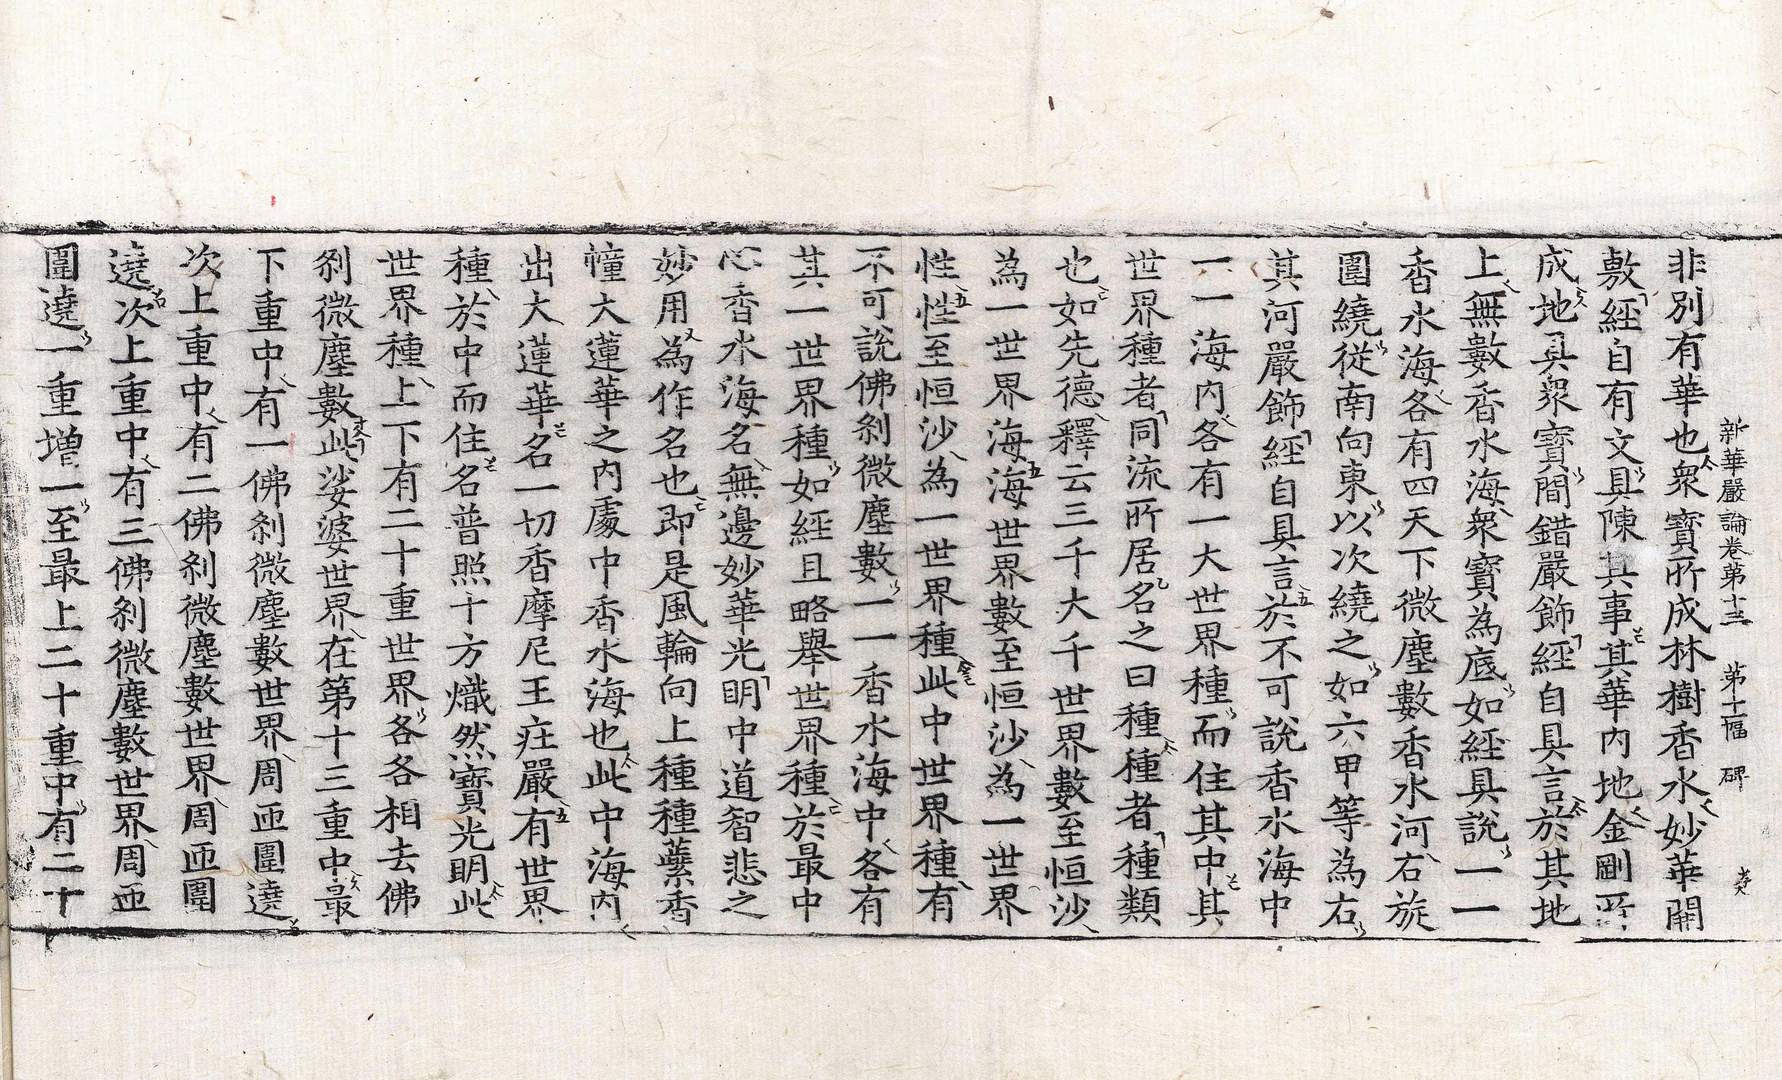 新華嚴論卷第十三　第十幅　碑
非別有華也衆寶所成林樹香水妙華開
敷經自有文具陳其事其華內地金剛所
成地具衆寶間錯嚴飾經自具言於其地
上無數香水海衆寶為底如經具說一一
香水海各有四天下微塵數香水河右旋
圍繞從南向東以次繞之如六甲等為右
其河嚴飾經自具言於不可說香水海中
一一海內各有一大世界種而住其中其
世界種者同流所居名之曰種種者種類
也如先德釋云三千大千世界數至恒沙
為一世界海海世界數至恒沙為一世界
性性至恒沙為一世界種此中世界種有
不可說佛剎微塵數一一香水海中各有
其一世界種如經且略舉世界種於最中
心香水海名無邊妙華光明中道智悲之
妙用為作名也即是風輪向上種種蘂香
幢大蓮華之內處中香水海也此中海內
出大蓮華名一切香摩尼王莊嚴有世界
種於中而住名普照十方熾然寶光明此
世界種上下有二十重世界各各相去佛
剎微塵數此娑婆世界在第十三重中最
下重中有一佛剎微塵數世界周匝圍遶
次上重中有二佛剎微塵數世界周匝圍
遶次上重中有三佛剎微塵數世界周匝
圍遶一重增一至最上二十重中有二十